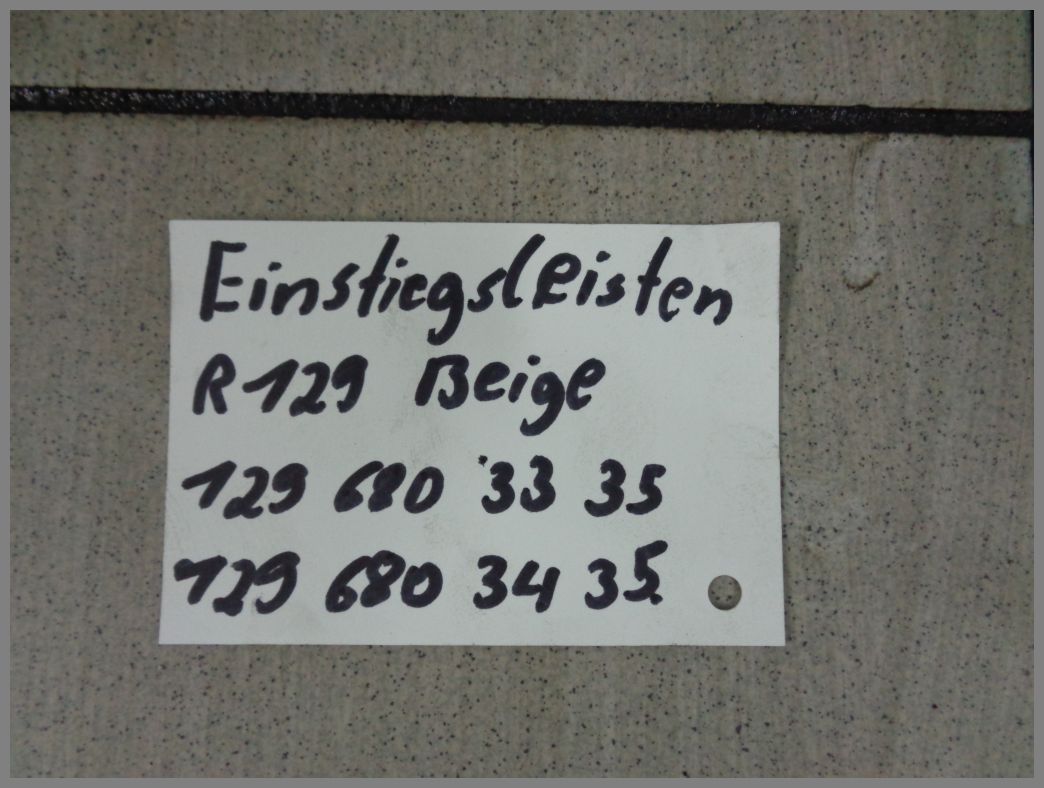 Einstiegsleisten
R129 Beige
129 680 33 35
129 680 34 35